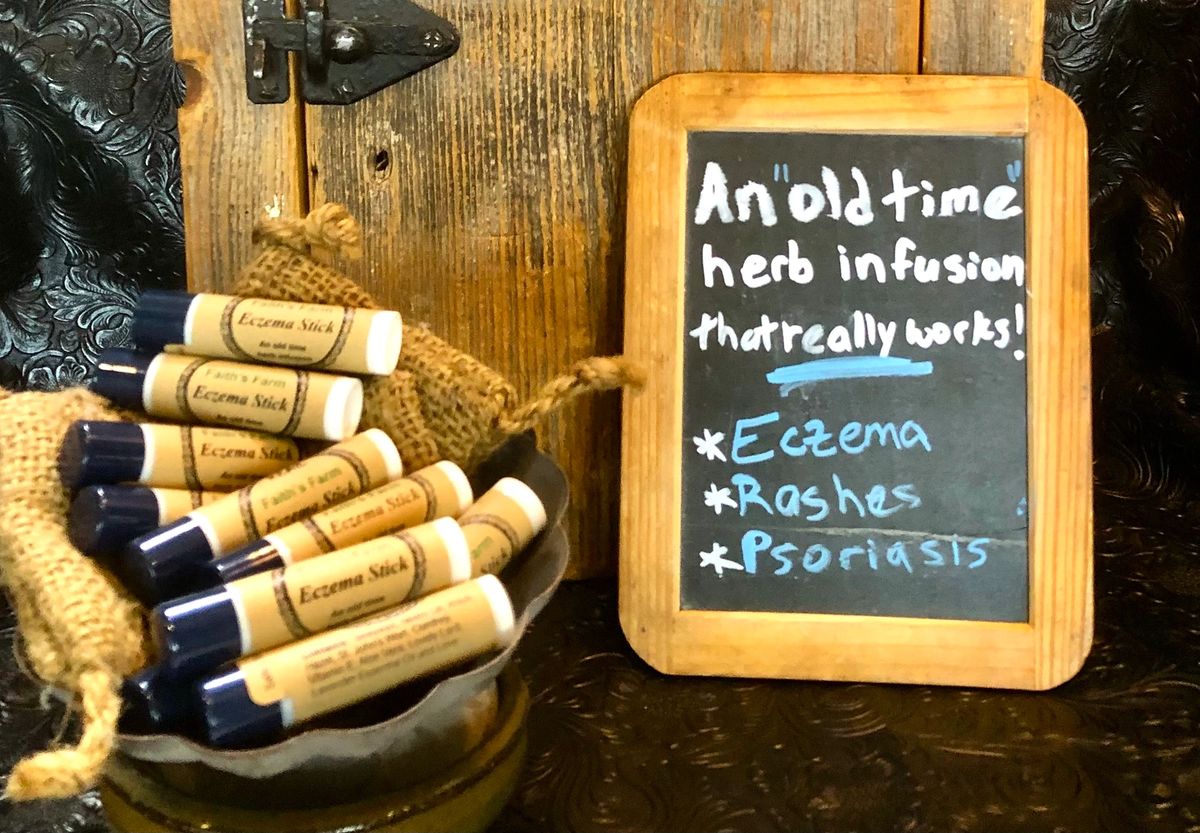 An "old time"
herb infusion
that really works!
*Eczema
*Rashes
*Psoriasis
Faith's Farm
Eczema Stick
An old time
Faith's Farm
Eczema Stick
An old time
Eczema Stick
Faith's Farm
Eczema Stick
Eczema Stick
Farm
Stick
Eczema Stick
An old time